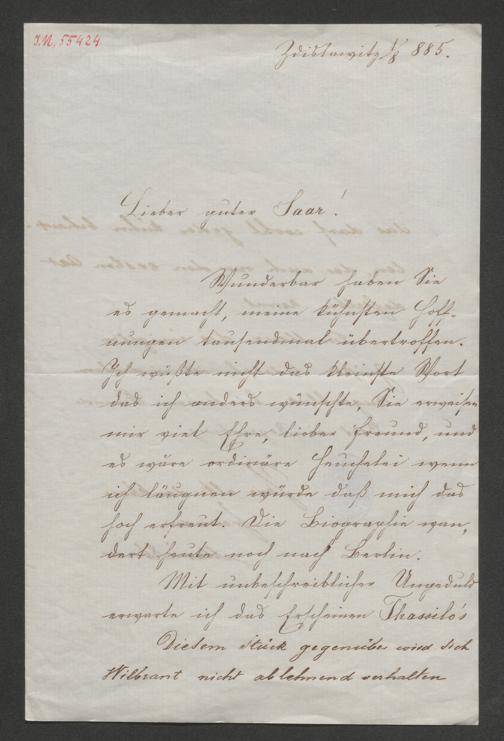 J.N. 55424
Zdislawitz 885.
Lieber guter Saar!
Wunderbar haben Sie
es gemacht, meine kühnsten Hoff-
nungen tausendmal übertroffen.
Ich wüßte nicht das kleinste Wort
das ich anders wünschte. Sie erweisen
mir viel Ehre, lieber Freund, und
es wäre ordinäre Heuchelei wenn
ich läugnen würde daß mich das
hoch erfreut. Die Biographie wan,
dert heute noch nach Berlin.
Mit unbeschreiblicher Ungeduld
erwarte ich das Erscheinen Thassilo's
Diesem Stück gegenüber wird sich
Wilbrant nicht ablehnend verhalten